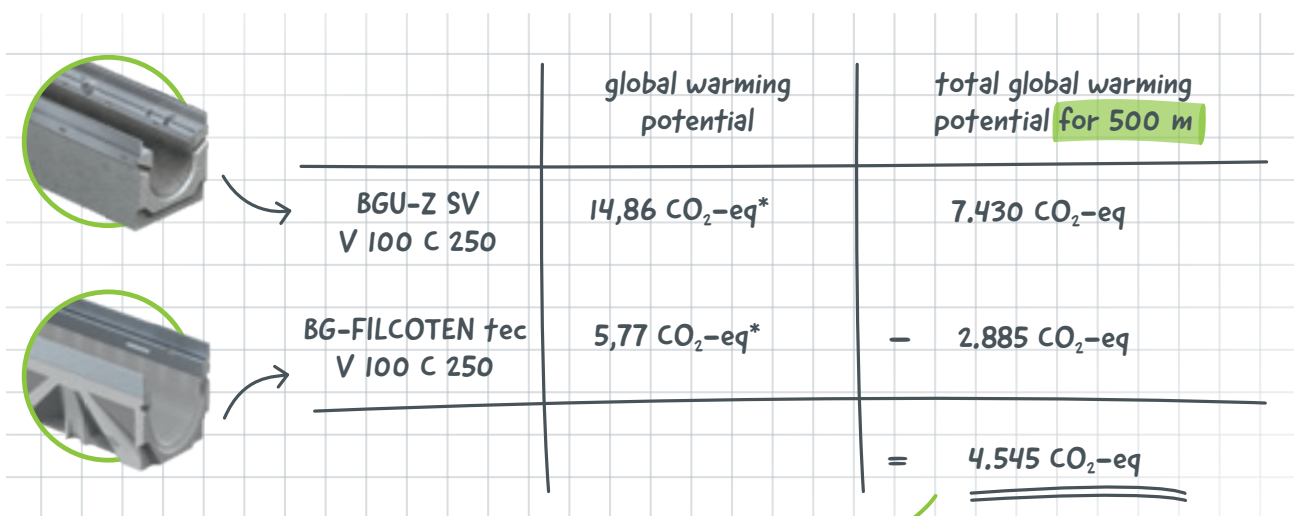 global warming
potential
total global warming
potential for 500 m
BGU-Z SV
V 100 C 250
14,86 CO₂-eq*
7.430 CO₂-eq
BG-FILCOTEN tec
V 100 C 250
5,77 CO₂-eq*
- 2.885 CO₂-eq
= 4.545 CO₂-eq